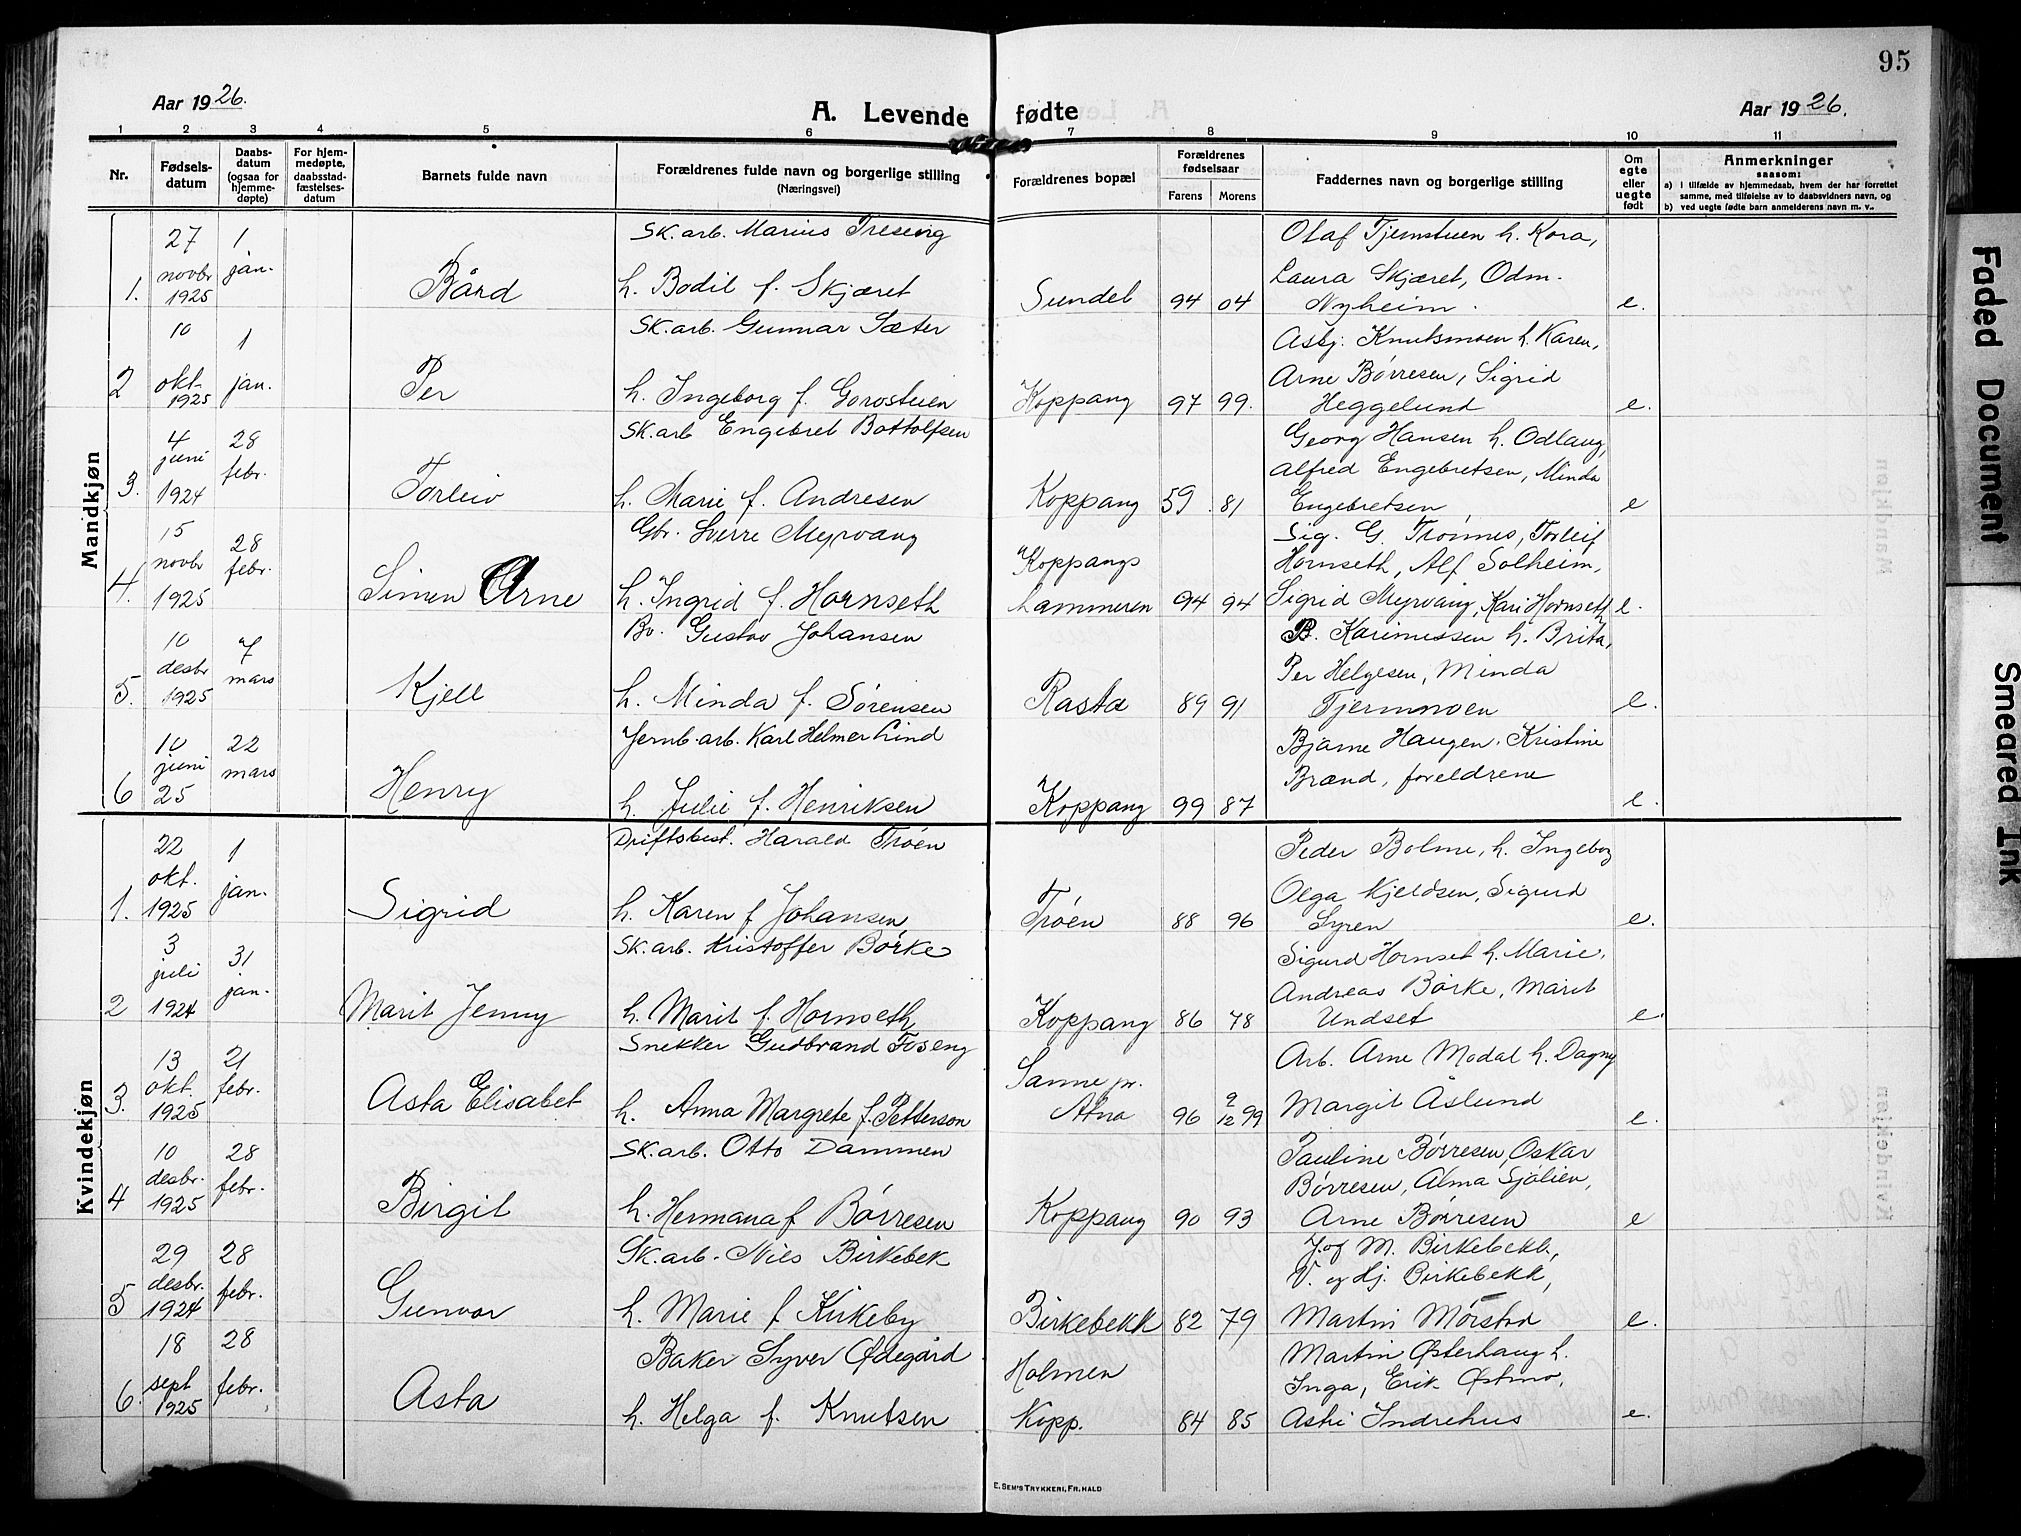 95
Aar 1926.
A. Levende fødte
Aar 1926.
1 2 3 4 5 6 7 8 9 10 11
Nr.
Fødsels-
datum
Daabs-
datum
(ogsaa for
hjemme-
døpte)
For hjem-
medøpte,
daabsstad-
fæstelses-
datum
Barnets fulde navn
Forældrenes fulde navn og borgerlige stilling
(Næringsvei)
Forældrenes bopæl
Forældrenes
fødselsaar
Farens Morens
Faddernes navn og borgerlige stilling
Om
egte
eller
uegte
født
Anmerkninger
saasom:
a) i tilfælde av hjemmedaab, hvem der har forrettet
samme, med tilføielse av to daabsvidners navn, og
b) ved uegte fødte barn anmelderens navn m. v..
Mandkjøn
1. 27 novbr 1925 1 jan. Bård
Sk. arb. Marius Treseng
h. Bodil f. Skjæret
Sundet 94 04
Olaf Tjernstuen h. Kora,
Laura Skjæret, Odm.
Nyheim. e.
2 10 okt. 1925 1 jan. Per
Sk. arb. Gunnar Sæter
h. Ingeborg f. Gorostuen
Koppang 97 99.
Asbj. Knutsmoen h. Karen,
Arne Børresen, Sigrid
Heggelund e.
3. 4 juni 1924 28 febr. Torleiv
Sk. arb Engebret Bottolfsen
h. Marie f. Andresen
Koppang 59. 81
Georg Hansen h. Odlaug,
Alfred Engebretsen, Minda
Engebretsen e
4. 15 novbr 1925 28 febr. Simen Arne
Gbr. Sverre Myrvang
h. Ingrid f. Hornseth
Koppangs
kammeren 94 94
Sig. G. Trønnes, Torleif
Hornseth, Alf Solheim,
Sigrid Myrvang, Kari Hornseth e.
5. 10 desbr 1925 7 mars Kjell
Bv. Gustav Johansen
h. Minda f. Sørensen
Rasta 89 91
B. Karinussen h. Brita,
Per Helgesen, Minda
Tjernmoen e.
6 10 juni 25 22 mars Henry
Jernb. arb. Karl Helmer Lind
h. Julie f. Henriksen
Koppang 99 87
Bjarne Haugen. Kristine
Brænd, foreldrene
e.
Kvindekjøn
1. 22 okt. 1925 1 jan. Sigrid
Driftsbest. Harald Trøen
h. Karen f Johansen
Trøen 88 96
Peder Bolme, h. Ingeborg
Olga Kjeldsen, Sigurd
Syren e.
2 3 juli 1924 31 jan. Marit Jenny
Sk. arb. Kristoffer Børke
h. Marit f. Hornseth
Koppang 86 78
Sigurd Hornset h. Marie,
Andreas Børke, Marit
Undset e.
3. 13 okt. 1925 21 febr. Asta Elisabet
Snekker Gudbrand Foseng
h. Anna Margrete f. Petterson
Sanne pr.
Atna 96 9/12 99
Arb. Arne Modal h. Dagny
Margit Åslund e.
4 10 desbr. 1925 28 febr. Birgit
Sk. arb. Otto Dammen
h. Hermana f Børresen
Koppang 90 93
Pauline Børresen, Oskar
Børresen, Alma Sjølien,
Arne Børresen e
5 29 desbr. 1924 28 febr. Gunvor
Sk. arb. Nils Birkebek
h. Marie f Kirkeby
Birkebekk 82 79
J. of M. Birkebekk,
V. og Hj. Birkebekk,
Martin Mørstad e.
6. 18 sept 1925 28 febr. Asta
Baker Syver Ødegård
h. Helga f. Knutsen
Holmen
Kopp. 84 85
Martin Østerhaug h.
Inga, Erik Østmo,
Asti Indrehus e.
E. Sem's Trykkeri, Fr.hald
Faded Document
Smeared Ink